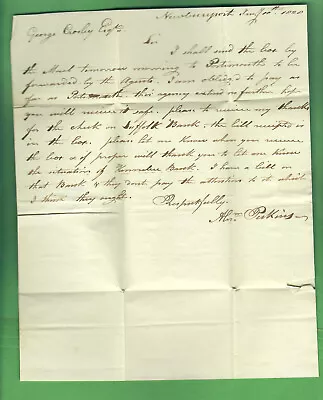 Newburyport Jany 10th 1820
George Crosby Esqr
Sir
I shall send the box by
the Mail tomorrow morning to Portsmouth to be
forwarded by the Agents. I am obliged to pay as
far as Portsmouth. this agency extend no further hope
you will receive it safe. please to receive my thanks
for the check on Suffolk Bank. the bill receipted is
in the box. please let me know when you receive
the box & if proper will thank you to let me know
the situation of Kennebec Bank. I have a bill on
that Bank & they dont pay the attention to it which
I think they ought.
Respectfully
Abrm Perkins